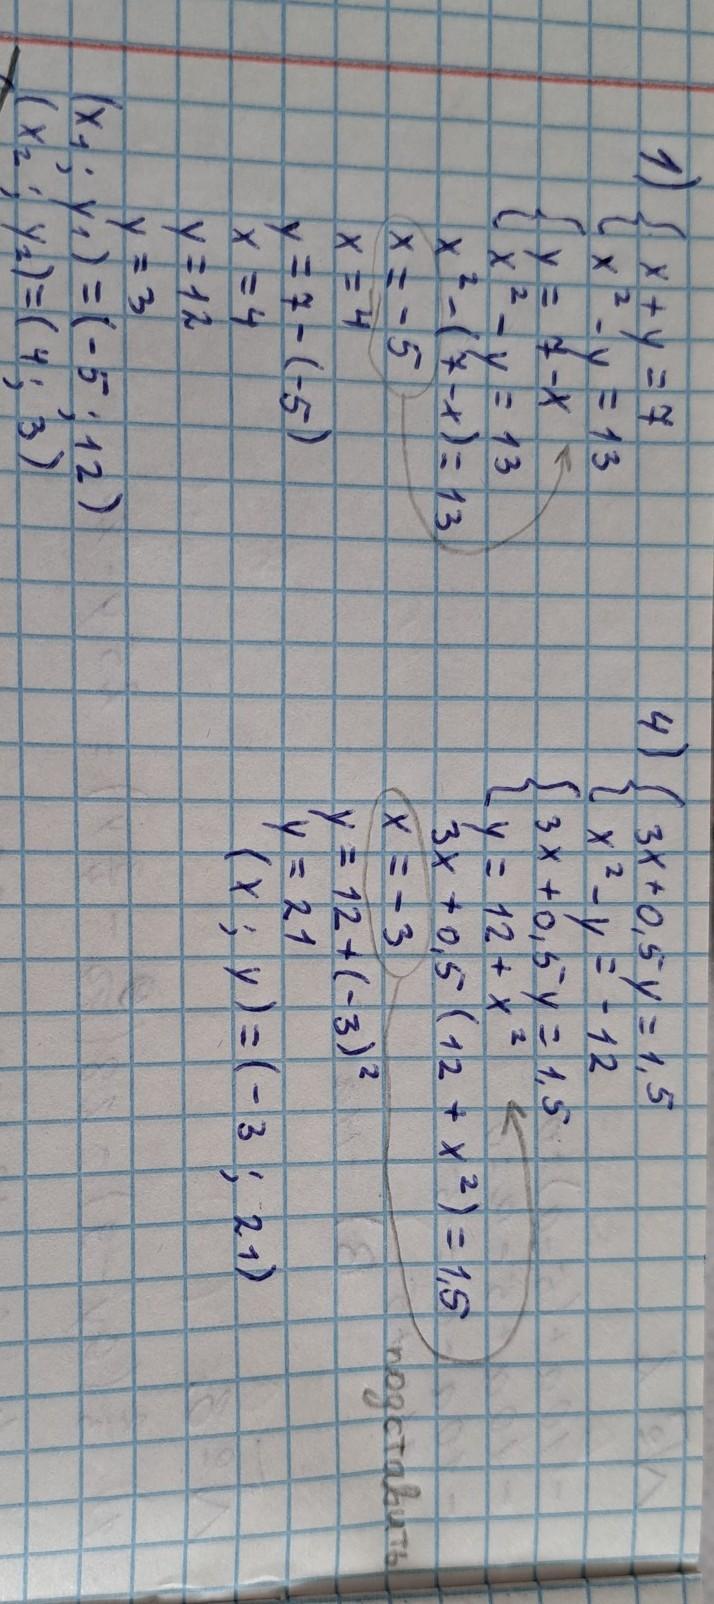 1) { x + y = 7
{ x² - y = 13
{ y = 7 - x
{ x² - y = 13
x² - (7 - x) = 13
x = -5
x = 4
y = 7 - (-5)
x = 4
y = 12
y = 3
(x₁; y₁) = (-5; 12)
(x₂; y₂) = (4; 3)
4) { 3x + 0,5y = 1,5
{ x² - y = -12
{ 3x + 0,5y = 1,5
{ y = 12 + x²
3x + 0,5(12 + x²) = 1,5
x = -3
подставить
y = 12 + (-3)²
y = 21
(x; y) = (-3; 21)